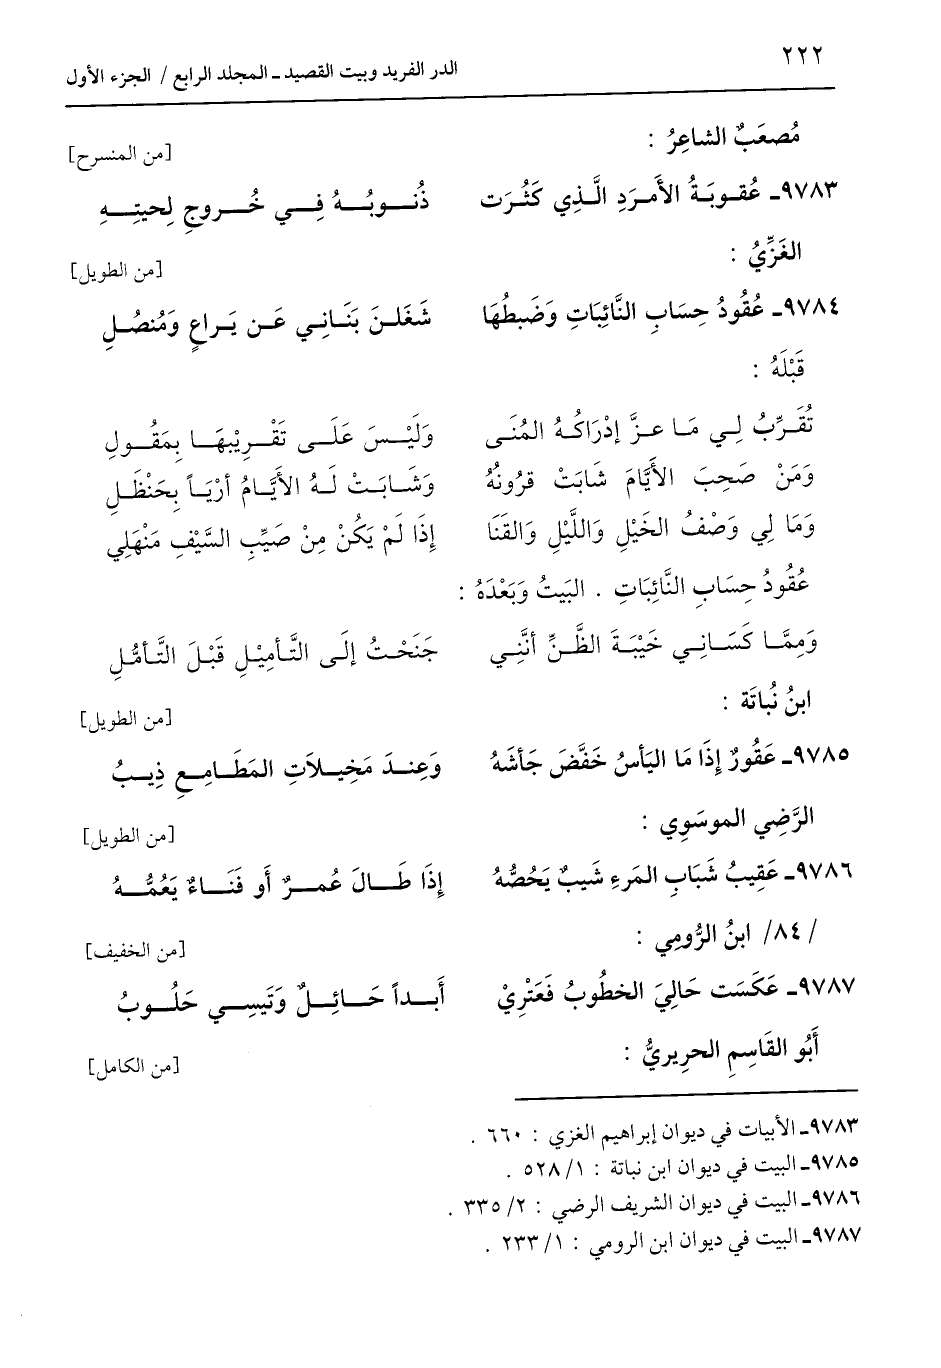 ٢٢٢
الدر الفريد وبيت القصيد ـ المجلد الرابع / الجزء الأول
مُصعَبٌ الشاعِرُ :
[من المنسرح]
٩٧٨٣ـ عُقوبَةُ الأَمرَدِ الَّذِي كَثُرَت ذُنوبُهُ فِي خُروجِ لِحيتِهِ
الغَزِّيُ :
[من الطويل]
٩٧٨٤ـ عُقُودُ حِسَابِ النَّائِبَاتِ وَضَبطُهَا شَغَلنَ بَنَانِي عَن يَراعٍ وَمُنصُلِ
قَبْلَهُ :
تُقَرِّبُ لِي مَا عزَّ إدْرَاكهُ المُنَى وَلَيْسَ عَلَى تَقْرِيْبهَا بِمَقُولِ
وَمَنْ صَحِبَ الأَيَّامَ شَابَتْ قرُونُهُ وَشَابَتْ لَهُ الأَيَّامُ أرْيَاً بِحَنْظَلِ
وَمَا لِي وَصْفُ الخَيْلِ وَاللَّيْلِ وَالقَنَا إذَا لَمْ يَكُنْ مِنْ صَيِّبِ السَّيْفِ مَنْهَلِي
عُقُودُ حِسَابِ النَّائِبَاتِ . البَيتُ وَبَعْدَهُ :
وَمِمَّا كَسَانِي خَيْبَةَ الظَّنِّ أنَّنِي جَنَحْتُ إلَى التَّأمِيْلِ قَبْلَ التَّأمُّلِ
ابنُ نُباتَة :
[من الطويل]
٩٧٨٥ـ عَقُورٌ إذَا مَا اليَأسُ خَفَّضَ جَأشَهُ وَعِندَ مَخِيلاَتِ المَطَامِعِ ذِيبُ
الرَّضِي الموسَوِي :
[من الطويل]
٩٧٨٦ـ عَقِيبُ شَبَابِ المَرءِ شَيبٌ يَخُصُّهُ إذَا طَالَ عُمرٌ أو فَنَاءٌ يَعُمُّهُ
/ ٨٤/ ابنُ الرُّومِي :
[من الخفيف]
٩٧٨٧ـ عَكَسَت حَالِيَ الخطُوبُ فَعَنْزِيْ أَبداً حَائِلٌ وَتَيسِي حَلُوبُ
أَبُو القَاسِمِ الحرِيريُّ :
[من الكامل]
٩٧٨٣ـ الأبيات في ديوان إبراهيم الغزي : ٦٦٠ .
٩٧٨٥ـ البيت في ديوان ابن نباتة : ١/ ٥٢٨ .
٩٧٨٦ـ البيت في ديوان الشريف الرضي : ٢/ ٣٣٥ .
٩٧٨٧ـ البيت في ديوان ابن الرومي : ١/ ٢٣٣ .